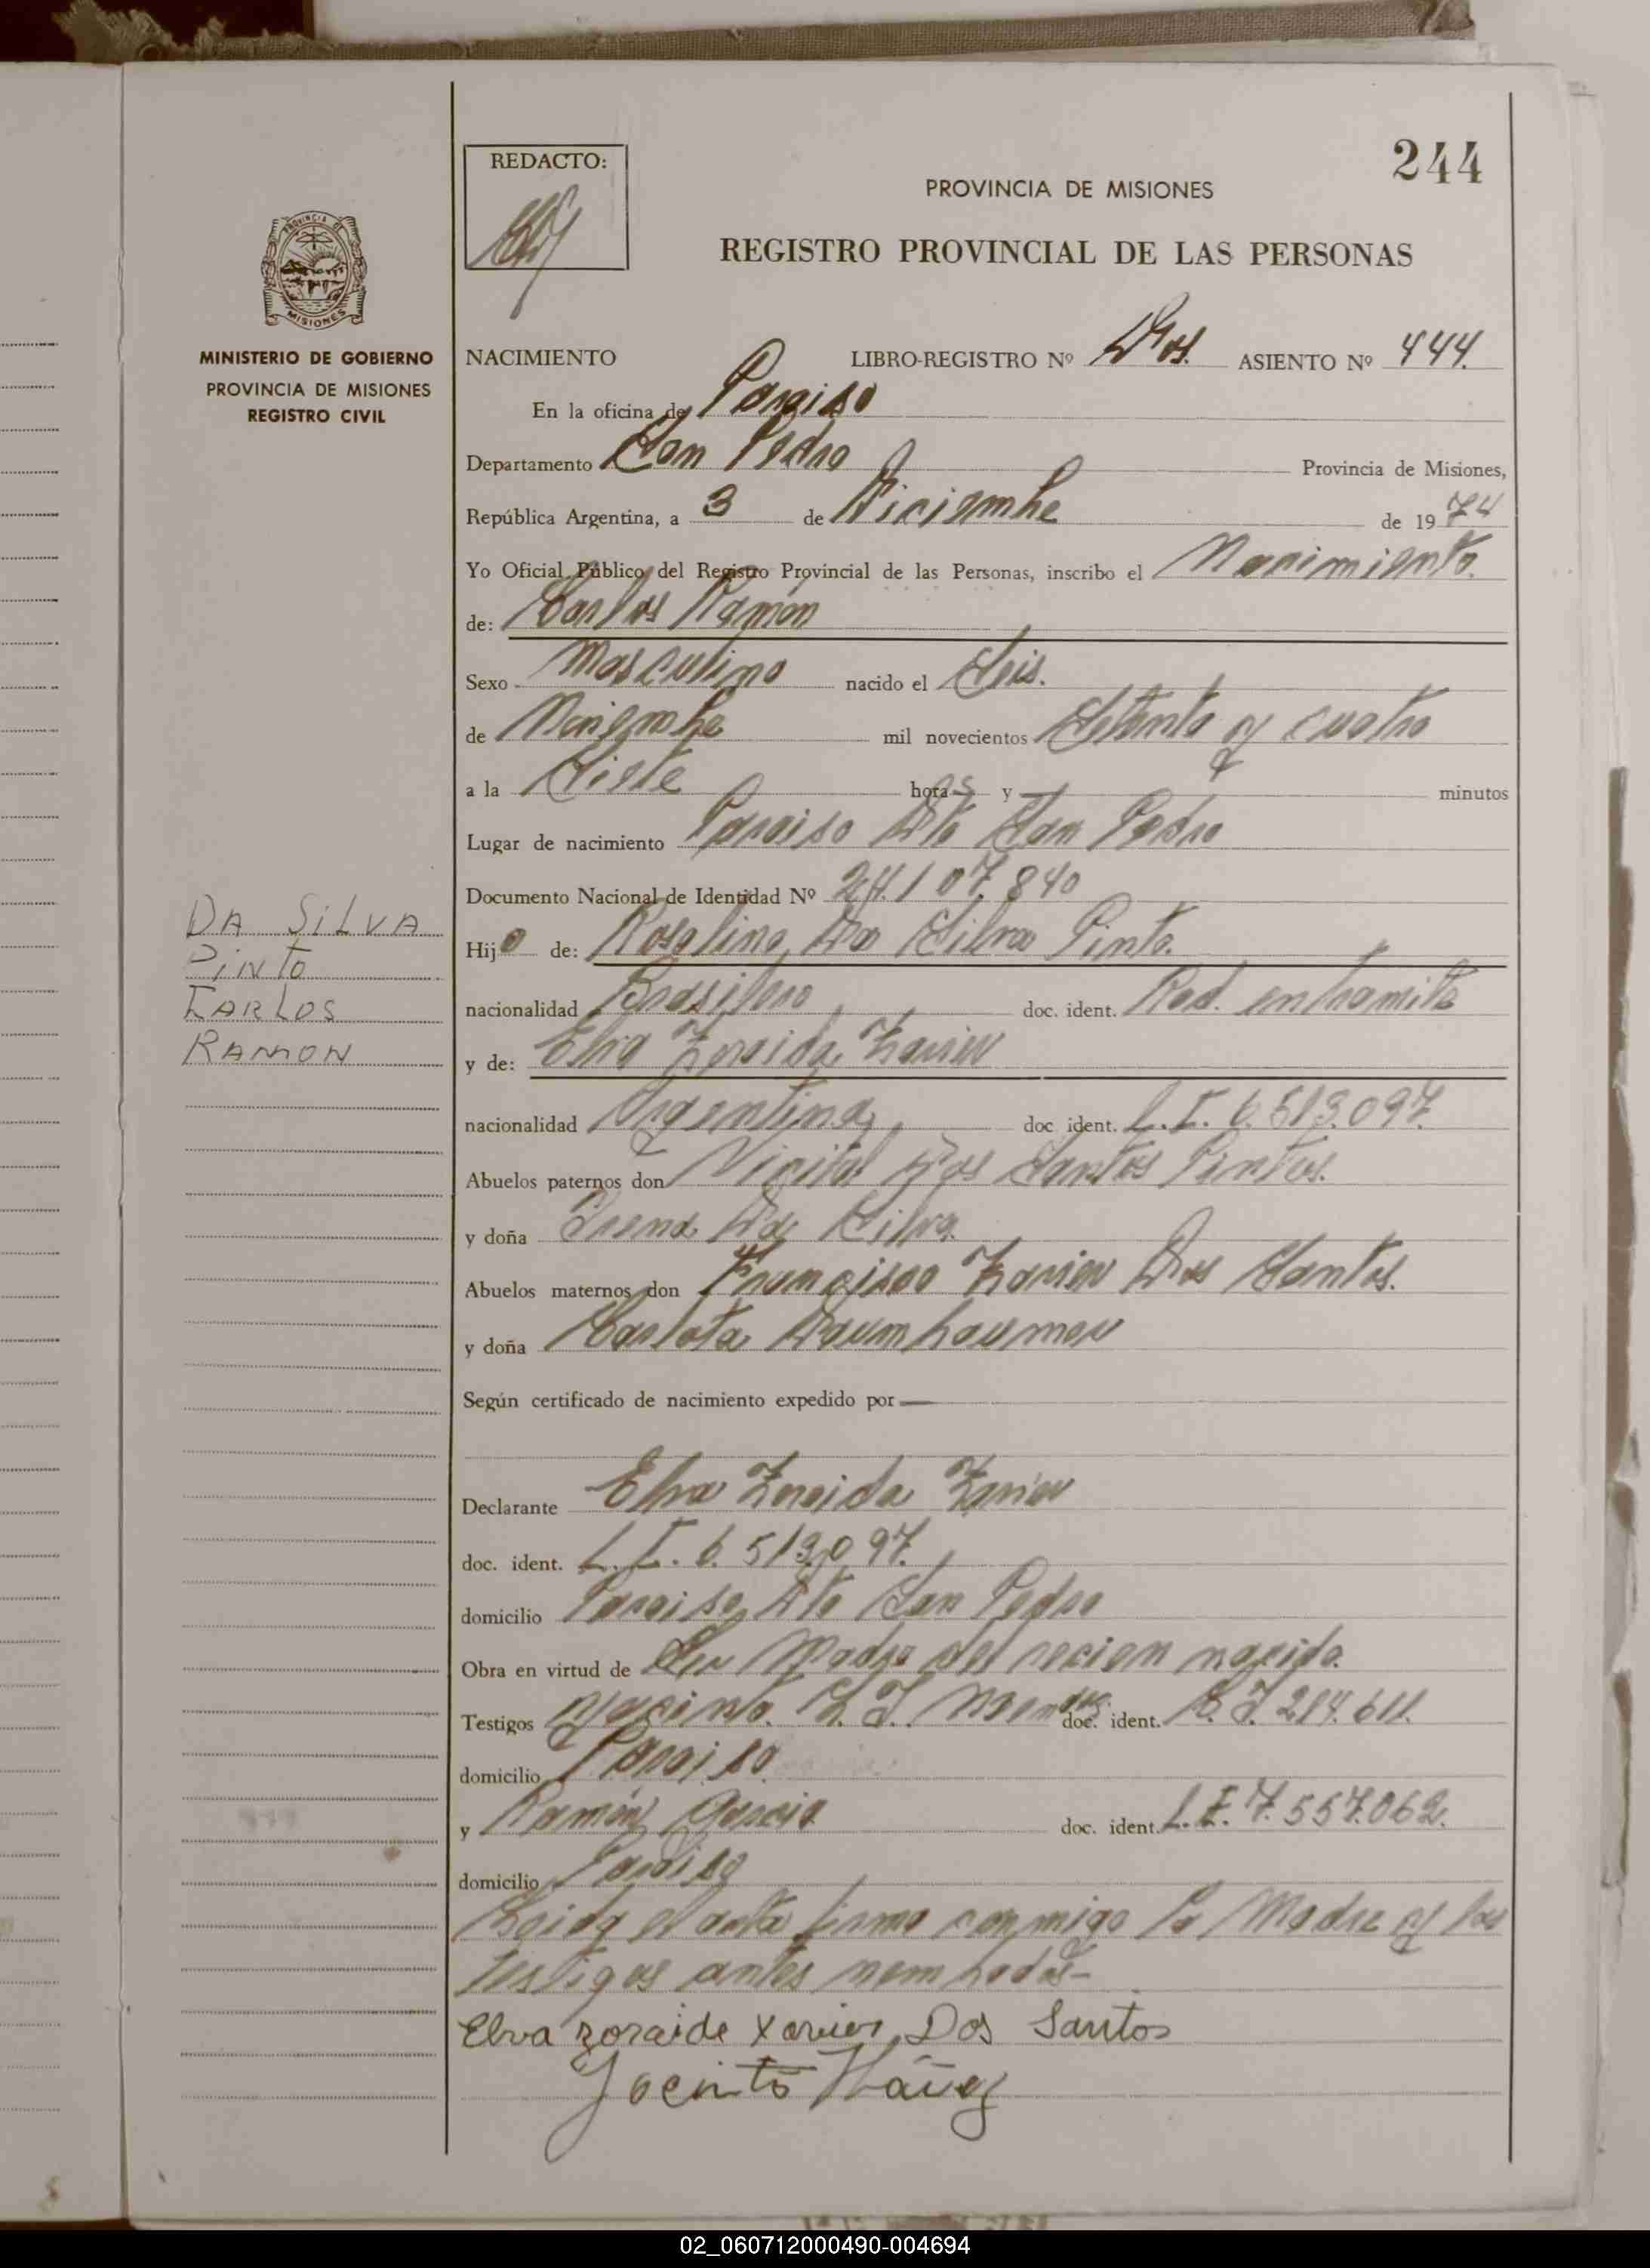 244
REDACTO:
PROVINCIA DE MISIONES
REGISTRO PROVINCIAL DE LAS PERSONAS
MISIONES
MINISTERIO DE GOBIERNO
PROVINCIA DE MISIONES
REGISTRO CIVIL
NACIMIENTO LIBRO-REGISTRO Nº Dos. ASIENTO Nº 444.
En la oficina de Paraiso
Departamento San Pedro Provincia de Misiones,
República Argentina, a 3 de Diciembre de 1974
Yo Oficial Público del Registro Provincial de las Personas, inscribo el Nacimiento.
de: Carlos Ramón
Sexo Masculino nacido el Seis.
de Noviembre mil novecientos Setenta y cuatro
a la Siete horas y — minutos
Lugar de nacimiento Paraiso Dto San Pedro
Documento Nacional de Identidad Nº 24.107.840
DA SILVA
PINTO
CARLOS
RAMON
Hijo de: Rosalino Da Silva Pinto.
nacionalidad Brasilero doc. ident. Rad. en tramite
y de: Elva Zoraida Xavier
nacionalidad Argentina doc. ident. L.I. 6.513.097.
Abuelos paternos don Dos Santos Pintos.
y doña Da Silva.
Abuelos maternos don Francisco Xavier Dos Santos.
y doña Carlota
Según certificado de nacimiento expedido por —
Declarante Elva Zoraida Xavier
doc. ident. L.I. 6.513.097.
domicilio Paraiso Dto San Pedro
Obra en virtud de Ser Madre del recien nacido.
Testigos doc. ident. 214.611.
domicilio Paraiso
y Ramón Garcia doc. ident. L.E. 7.557.062.
domicilio Paraiso
Leida el acta firma conmigo la Madre y los
testigos antes nombrados-
Elva Zoraide Xavier Dos Santos
02_060712000490-004694